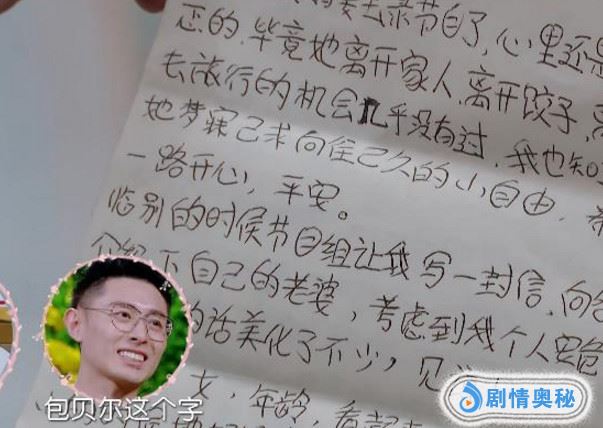 去录节目了,心里还是
恋的,毕竟她离开家人,离开饺子,
去旅行的机会几乎没有过,我也知
她梦寐己求向往已久的小自由,希
一路开心,平安。
临别的时候节目组让我写一封信,向
介绍下自己的老婆,考虑到我个人安危
的话美化了不少,见
女,年龄,看起来
包贝尔这个字
剧情奥秘